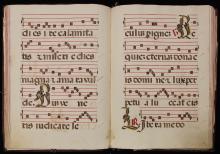 di es i de calamita
tis z miseri e dies
magna z ama ra val
de Dum ve ne
ris iudicare
culum p igne R
quiem eternam dona e
is domine z lux per
petu a lu ceat e is
Libera me do